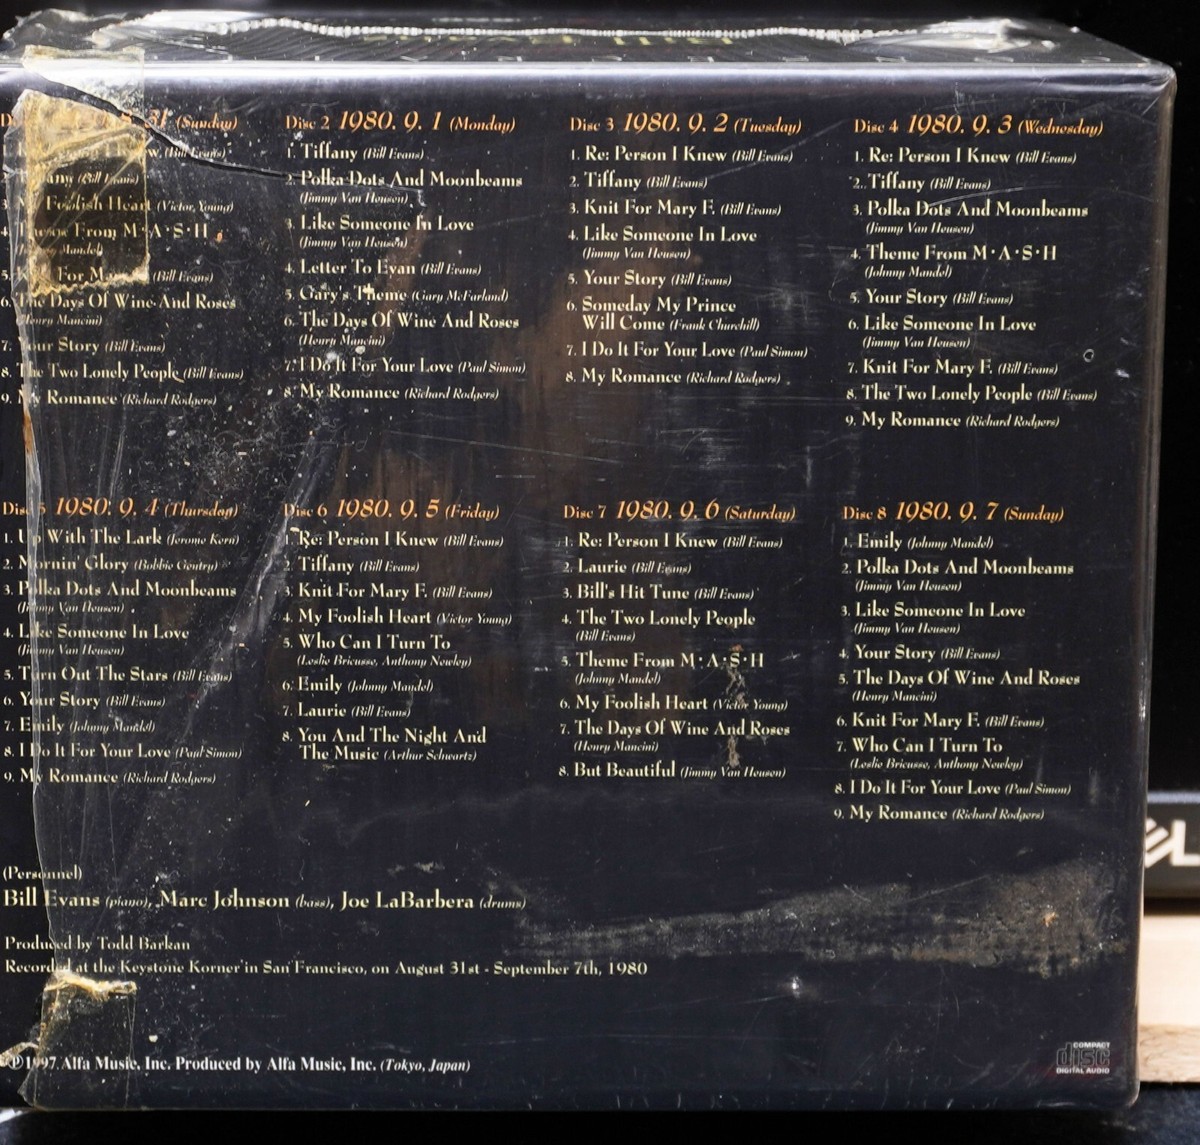 31 (Sunday)
(Bill Evans)
(Bill Evans)
3. My Foolish Heart (Victor Young)
4. Theme From M·A·S·H
Mandel)
5. For (Bill Evans)
6. The Days Of Wine And Roses
(Henry Mancini)
7. Your Story (Bill Evans)
8. The Two Lonely People (Bill Evans)
9. My Romance (Richard Rodgers)
Disc 2 1980. 9. 1 (Monday)
1. Tiffany (Bill Evans)
2. Polka Dots And Moonbeams
(Jimmy Van Heusen)
3. Like Someone In Love
(Jimmy Van Heusen)
4. Letter To Evan (Bill Evans)
5. Gary's Theme (Gary McFarland)
6. The Days Of Wine And Roses
(Henry Mancini)
7. I Do It For Your Love (Paul Simon)
8. My Romance (Richard Rodgers)
Disc 3 1980. 9. 2 (Tuesday)
1. Re: Person I Knew (Bill Evans)
2. Tiffany (Bill Evans)
3. Knit For Mary F. (Bill Evans)
4. Like Someone In Love
(Jimmy Van Heusen)
5. Your Story (Bill Evans)
6. Someday My Prince
Will Come (Frank Churchill)
7. I Do It For Your Love (Paul Simon)
8. My Romance (Richard Rodgers)
Disc 4 1980. 9. 3 (Wednesday)
1. Re: Person I Knew (Bill Evans)
2. Tiffany (Bill Evans)
3. Polka Dots And Moonbeams
(Jimmy Van Heusen)
4. Theme From M·A·S·H
(Johnny Mandel)
5. Your Story (Bill Evans)
6. Like Someone In Love
(Jimmy Van Heusen)
7. Knit For Mary F. (Bill Evans)
8. The Two Lonely People (Bill Evans)
9. My Romance (Richard Rodgers)
Disc 5 1980. 9. 4 (Thursday)
1. Up With The Lark (Jerome Kern)
2. Mornin' Glory (Bobbie Gentry)
3. Polka Dots And Moonbeams
(Jimmy Van Heusen)
4. Like Someone In Love
(Jimmy Van Heusen)
5. Turn Out The Stars (Bill Evans)
6. Your Story (Bill Evans)
7. Emily (Johnny Mandel)
8. I Do It For Your Love (Paul Simon)
9. My Romance (Richard Rodgers)
Disc 6 1980. 9. 5 (Friday)
1. Re: Person I Knew (Bill Evans)
2. Tiffany (Bill Evans)
3. Knit For Mary F. (Bill Evans)
4. My Foolish Heart (Victor Young)
5. Who Can I Turn To
(Leslie Bricusse, Anthony Newley)
6. Emily (Johnny Mandel)
7. Laurie (Bill Evans)
8. You And The Night And
The Music (Arthur Schwartz)
Disc 7 1980. 9. 6 (Saturday)
1. Re: Person I Knew (Bill Evans)
2. Laurie (Bill Evans)
3. Bill's Hit Tune (Bill Evans)
4. The Two Lonely People
(Bill Evans)
5. Theme From M·A·S·H
(Johnny Mandel)
6. My Foolish Heart (Victor Young)
7. The Days Of Wine And Roses
(Henry Mancini)
8. But Beautiful (Jimmy Van Heusen)
Disc 8 1980. 9. 7 (Sunday)
1. Emily (Johnny Mandel)
2. Polka Dots And Moonbeams
(Jimmy Van Heusen)
3. Like Someone In Love
(Jimmy Van Heusen)
4. Your Story (Bill Evans)
5. The Days Of Wine And Roses
(Henry Mancini)
6. Knit For Mary F. (Bill Evans)
7. Who Can I Turn To
(Leslie Bricusse, Anthony Newley)
8. I Do It For Your Love (Paul Simon)
9. My Romance (Richard Rodgers)
(Personnel)
Bill Evans (piano), Marc Johnson (bass), Joe LaBarbera (drums)
Produced by Todd Barkan
Recorded at the Keystone Korner in San Francisco, on August 31st - September 7th, 1980
℗1997 Alfa Music, Inc. Produced by Alfa Music, Inc. (Tokyo, Japan)
COMPACT
disc
DIGITAL AUDIO